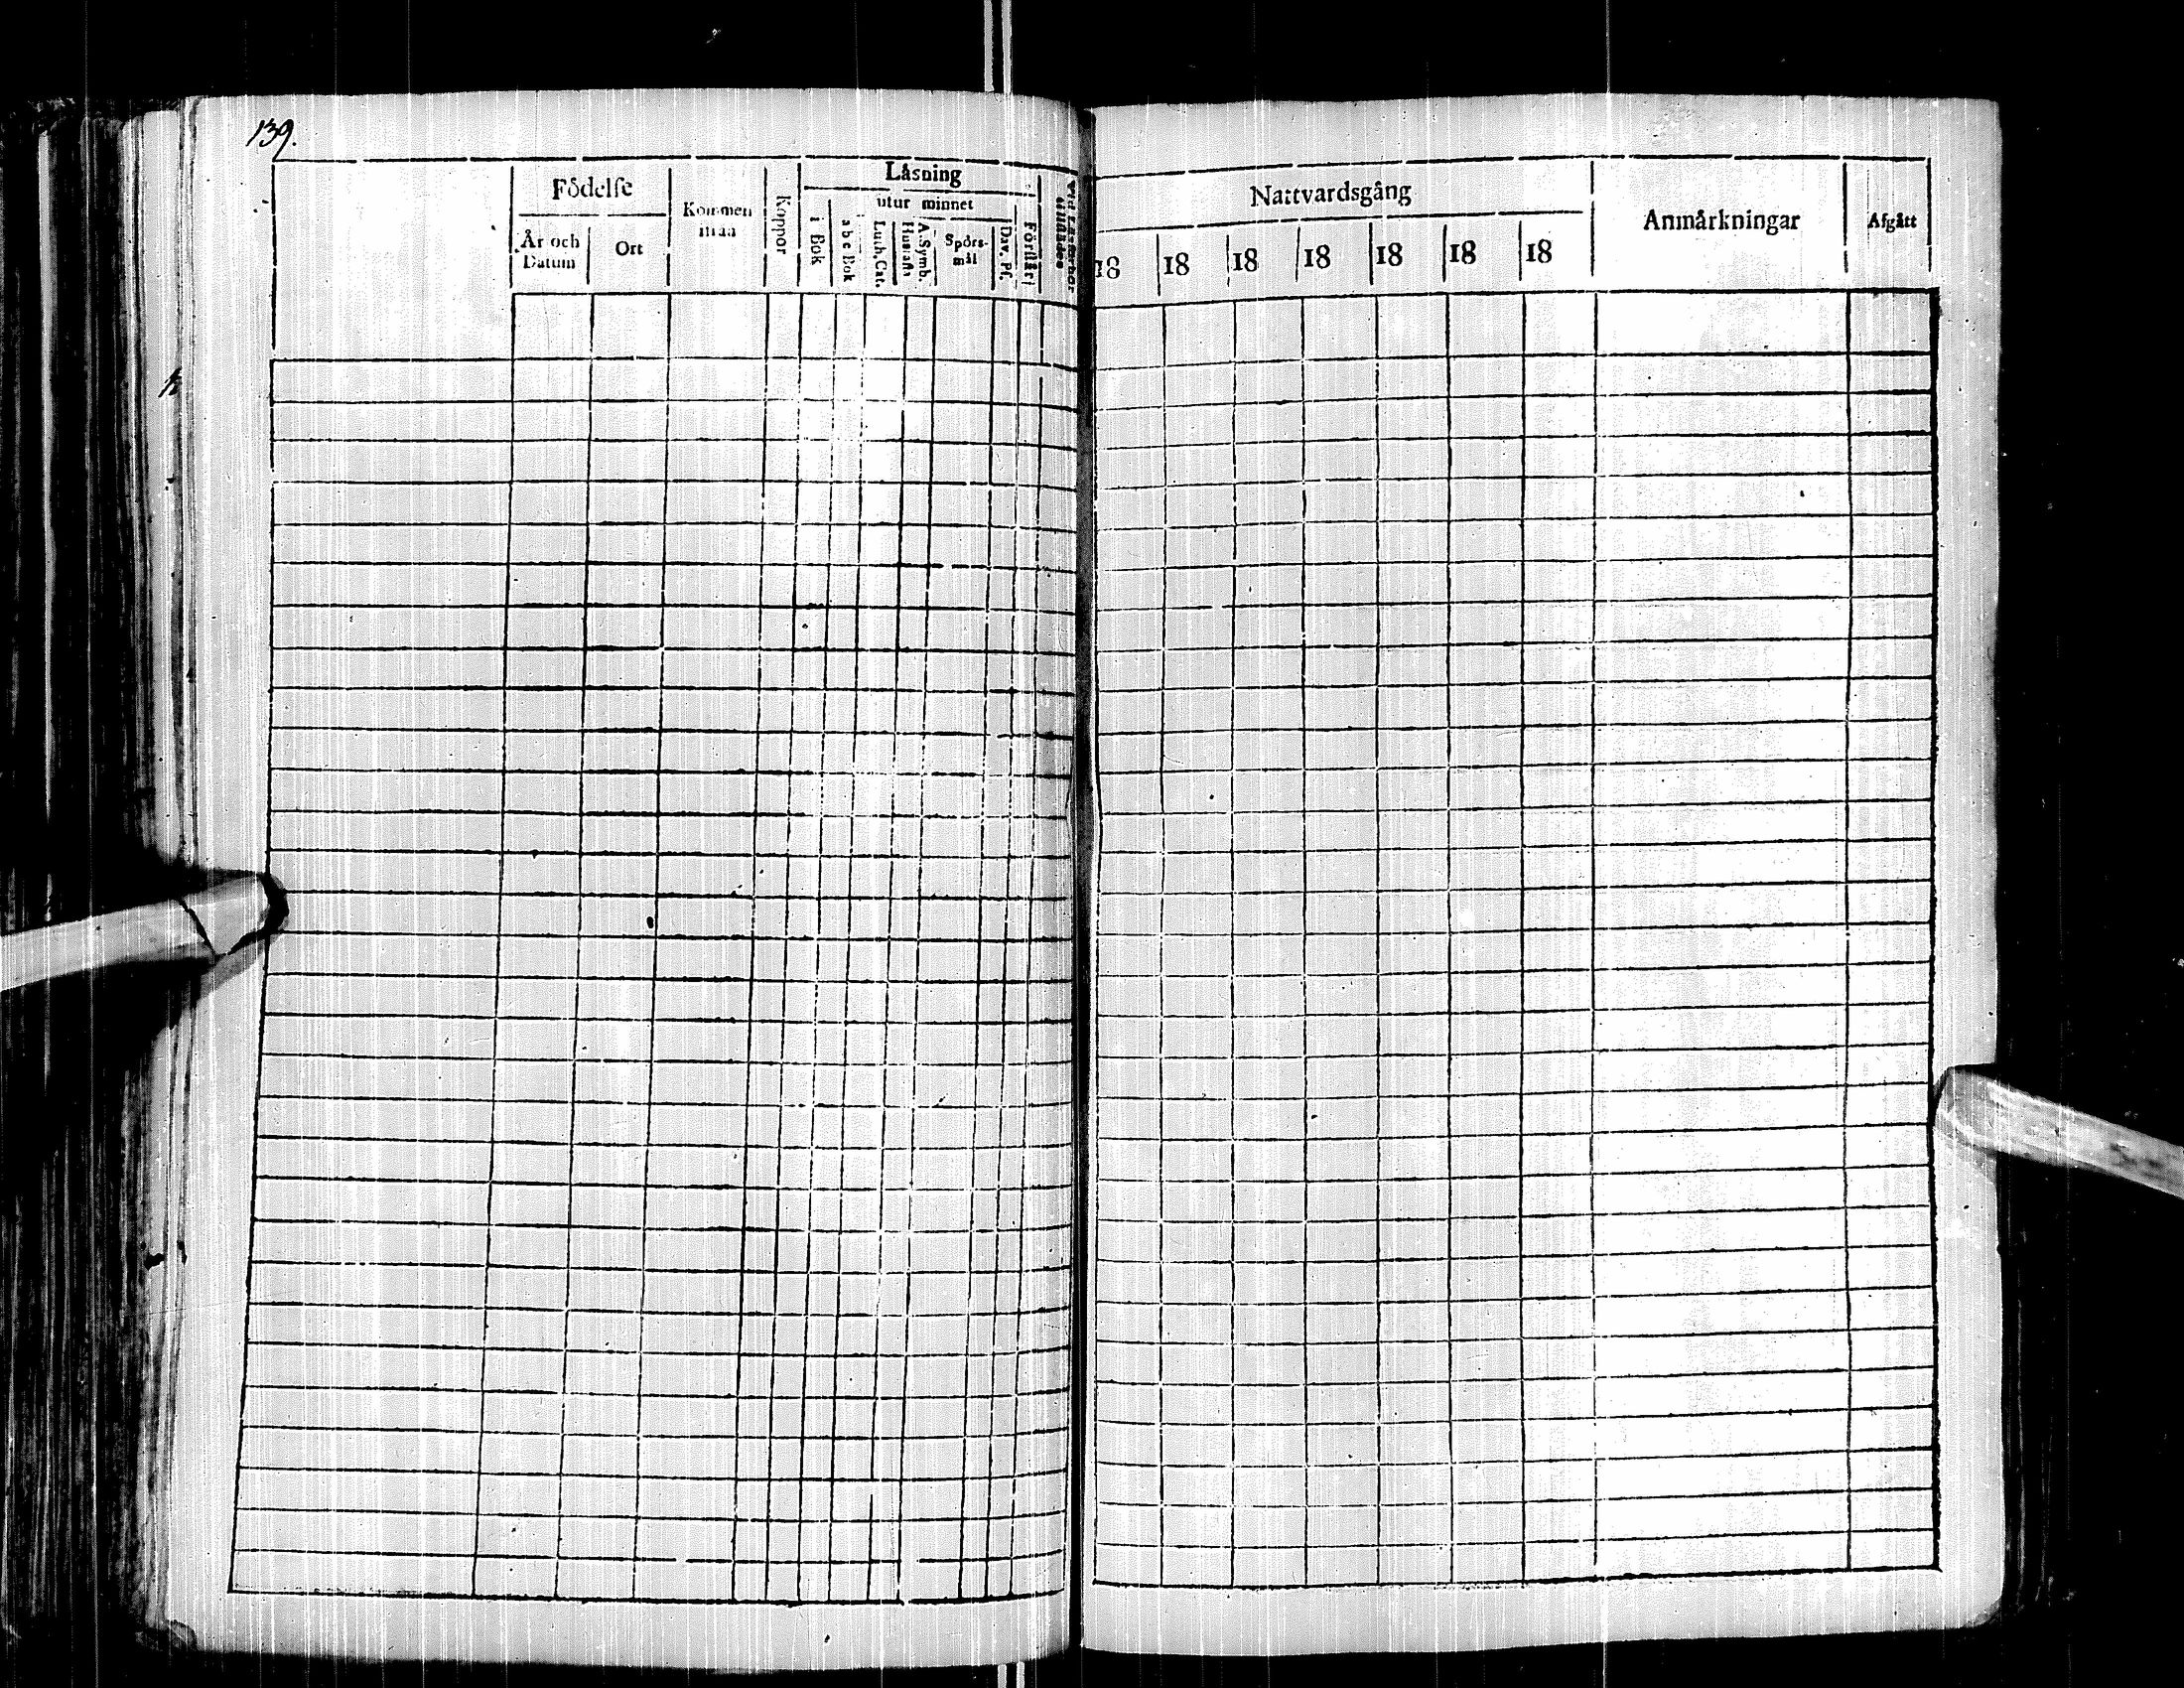 139.
Födelse
År och Datum
Ort
Kommen ifrån
Koppor
Låsning
i Bok
utur minnet
a b c Bok
Luth. Cat.
Hustafla
A. Symb.
Spörs-
mål
Dav. Ps.
Förstår
Nattvardsgång
18 18 18 18 18 18 18
Anmårkningar
Afgått